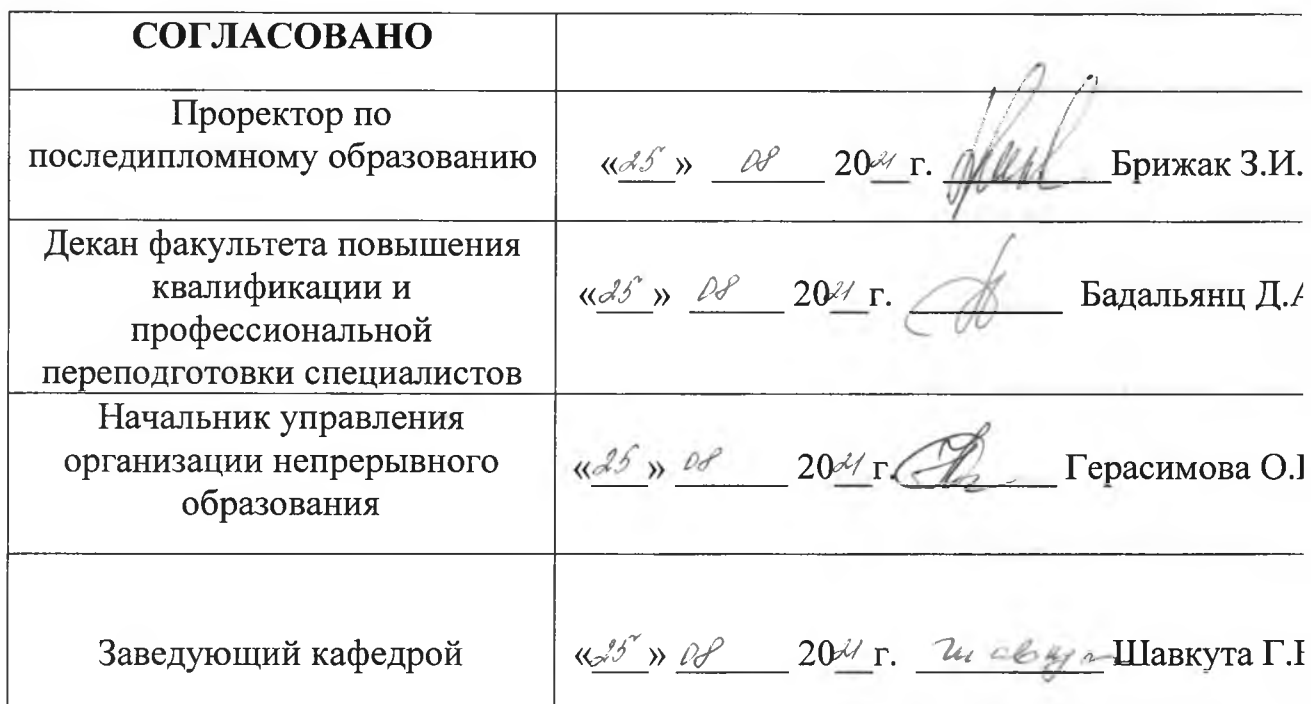 СОГЛАСОВАНО
Проректор по
последипломному образованию
«25» 08 2021 г. Брижак З.И.
Декан факультета повышения
квалификации и
профессиональной
переподготовки специалистов
«25» 08 2021 г. Бадальянц Д.А
Начальник управления
организации непрерывного
образования
«25» 08 2021 г. Герасимова О.
Заведующий кафедрой
«25» 08 2021 г. Шавкута Г.